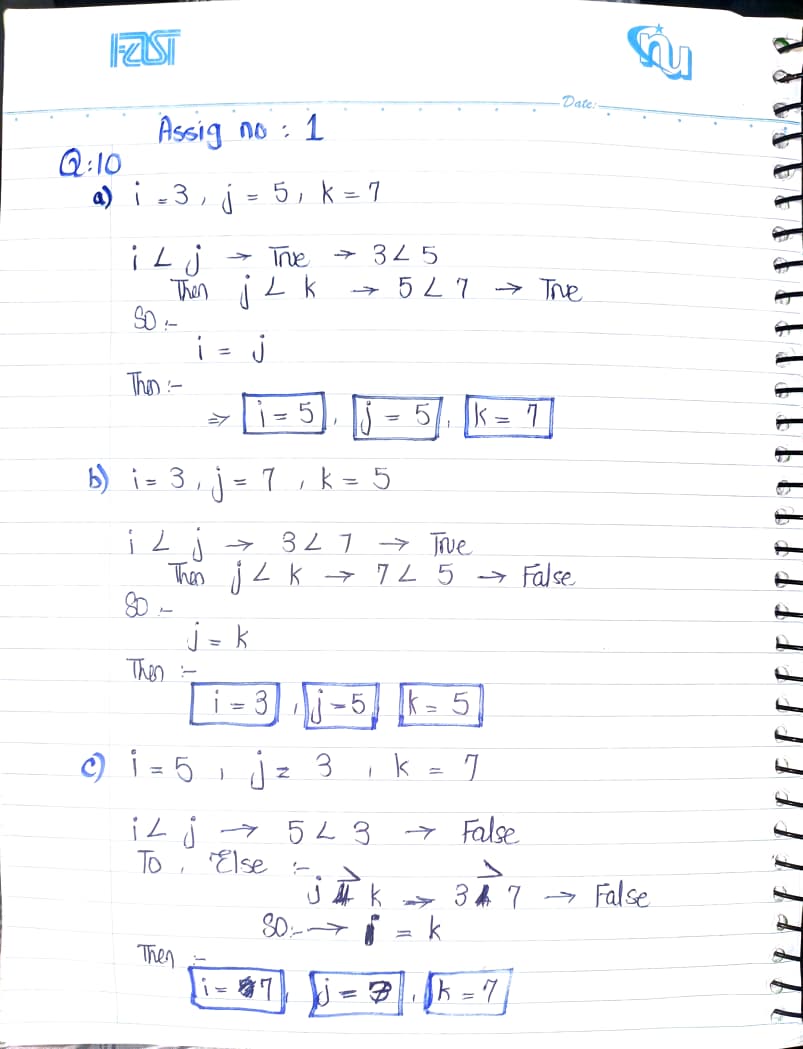 FAST
nu
Date:
Assig no : 1
Q:10
a) i = 3, j = 5, k = 7
i < j → True → 3 < 5
Then j < k → 5 < 7 → True
SO :-
i = j
Then :-
⇒ i = 5, j = 5, k = 7
b) i = 3, j = 7, k = 5
i < j → 3 < 7 → True
Then j < k → 7 < 5 → False
SO :-
j = k
Then :-
i = 3, j = 5 k = 5
c) i = 5, j = 3, k = 7
i < j → 5 < 3 → False
To, Else :-
j > k → 3 > 7 → False
SO:- → = k
Then :-
i = 7, j = , k = 7